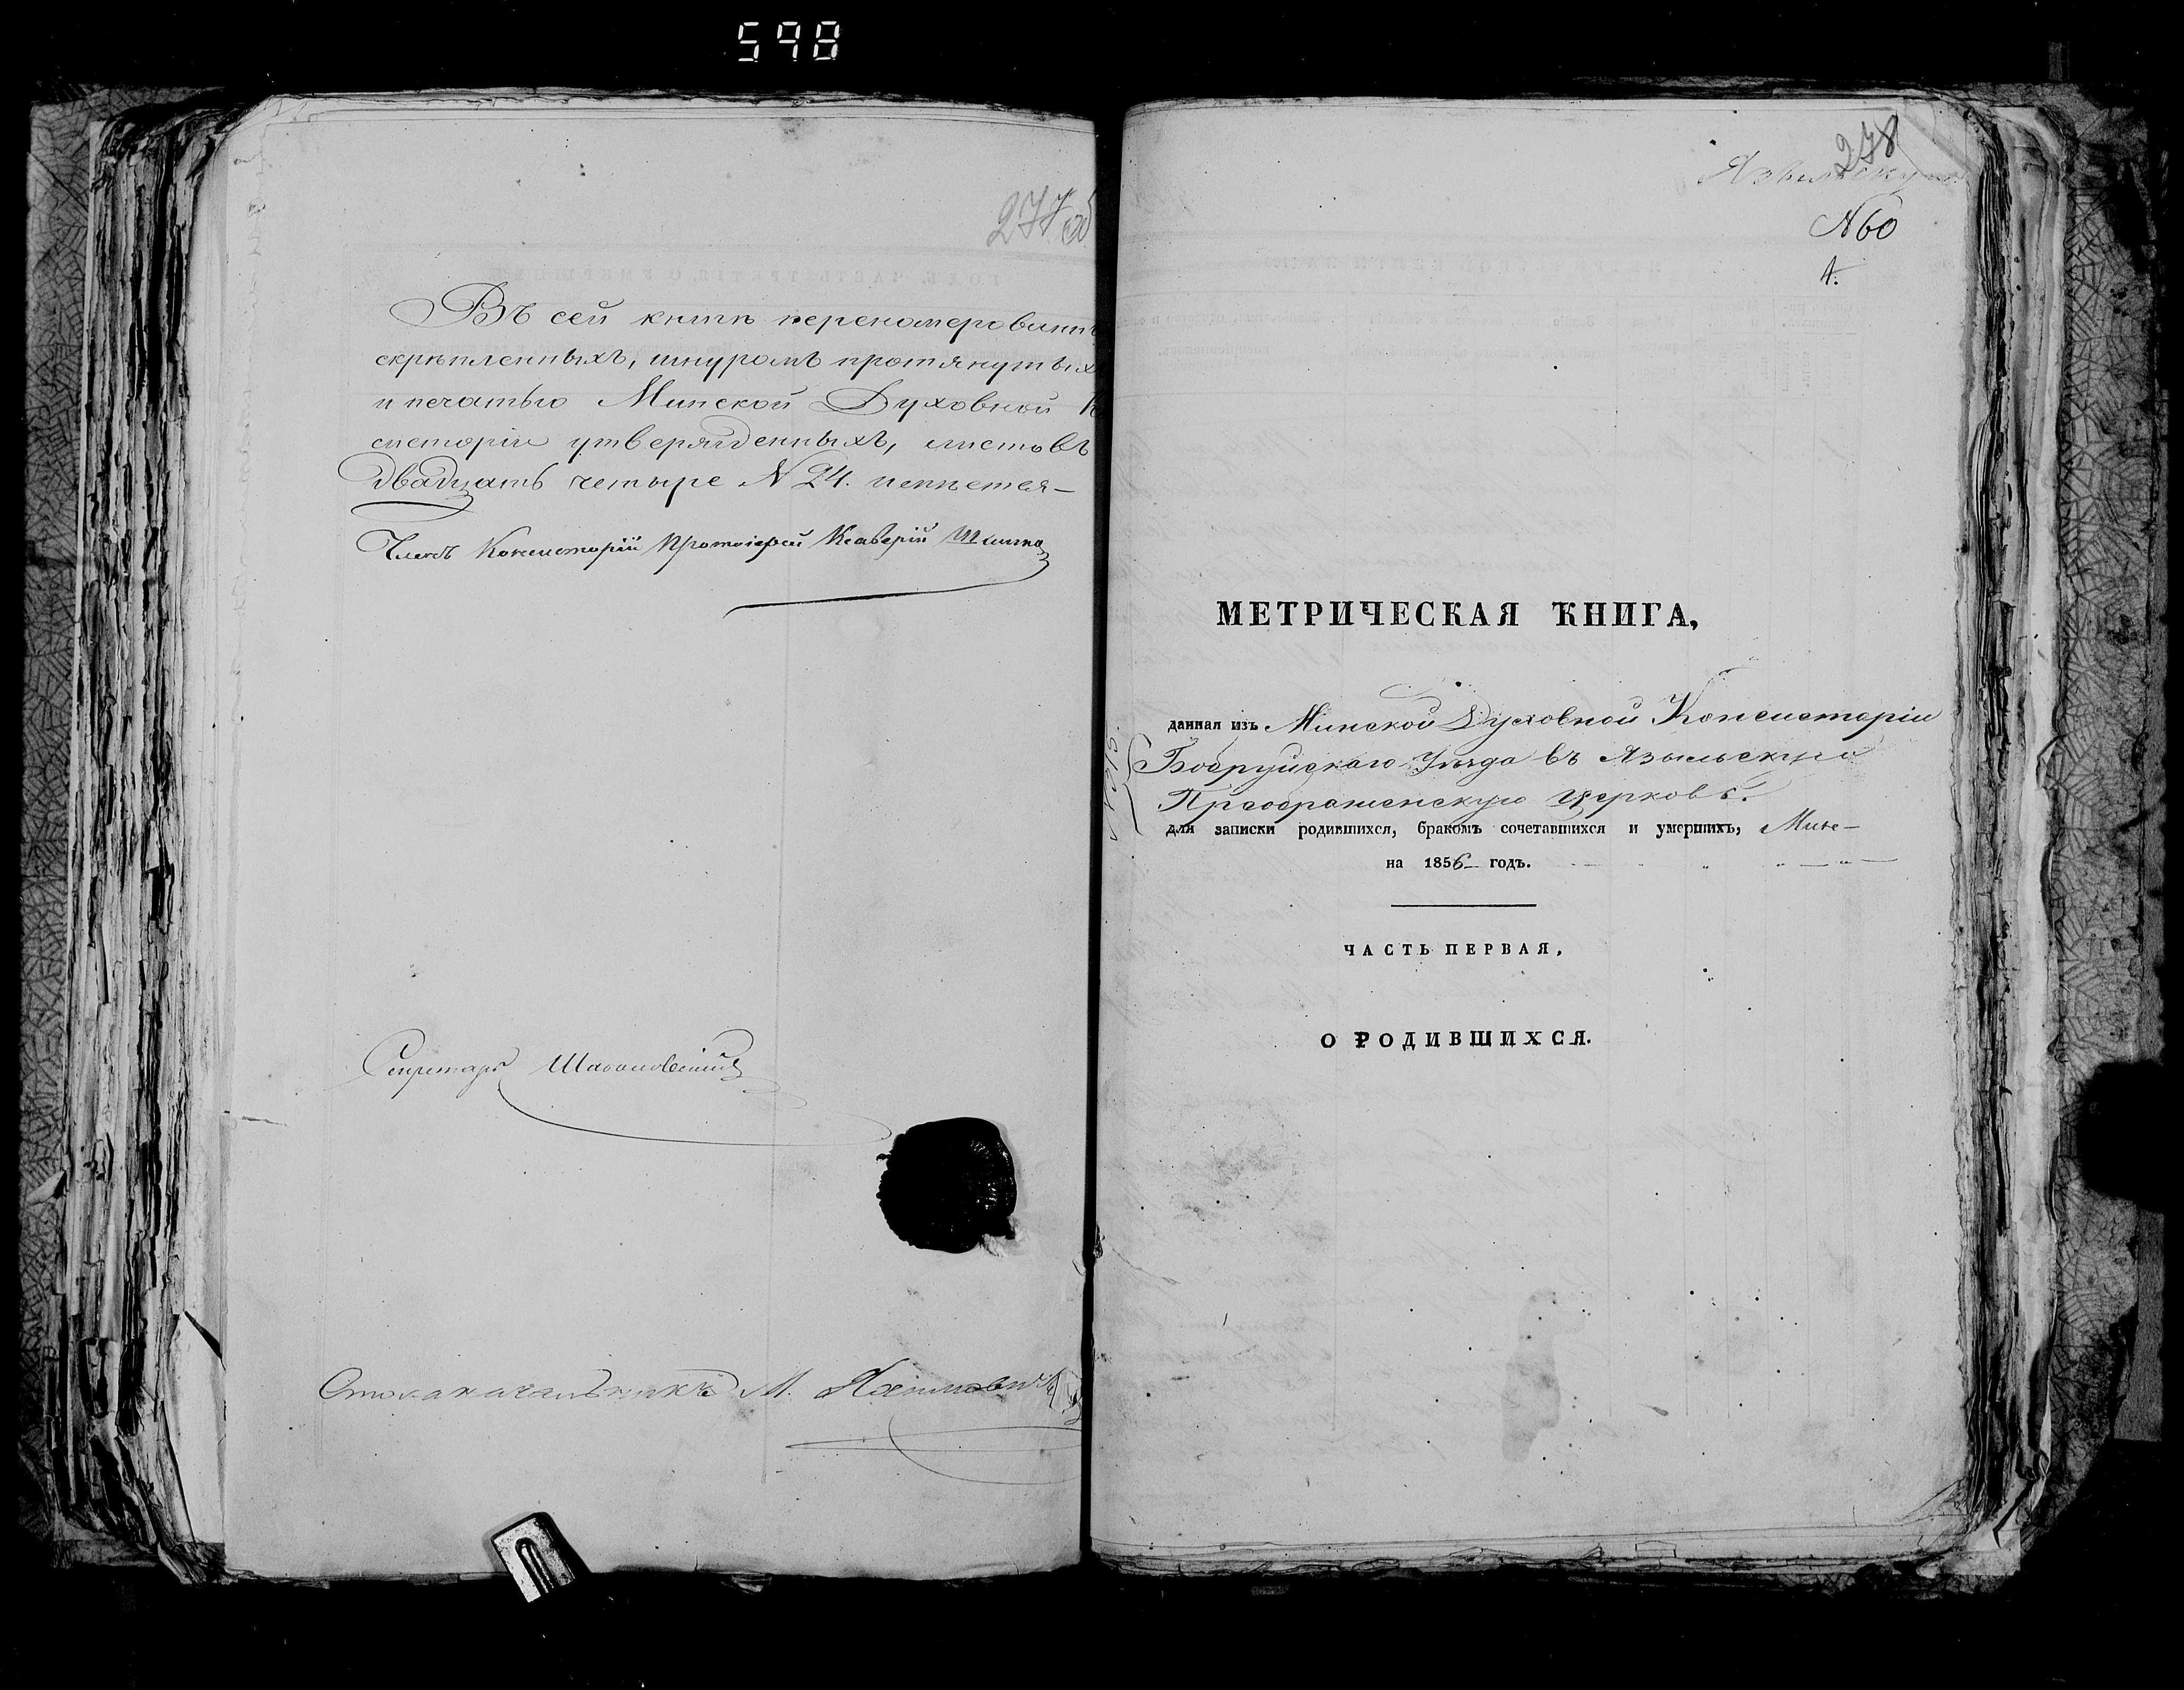 598
277 об
Въ сей книгѣ переномерованн
скрѣпленныхъ, шнуромъ протянутых
и печатью Минской Духовной К
систоріи утвержденныхъ, листовъ
двадцать четыре № 24. имѣется—
Членъ Консисторіи Протоіерей Ксаверій
Секретарь
Столоначальникъ М.
278
Языльскую
N60
1.
МЕТРИЧЕСКАЯ КНИГА,
данная изъ Минской Духовной Консисторіи
Бобруйскаго Уѣзда въ Языльскую
Преображенскую церковь.
для записки родившихся, бракомъ сочетавшихся и умершихъ,
на 1856 годъ.
ЧАСТЬ ПЕРВАЯ,
О РОДИВШИХСЯ.